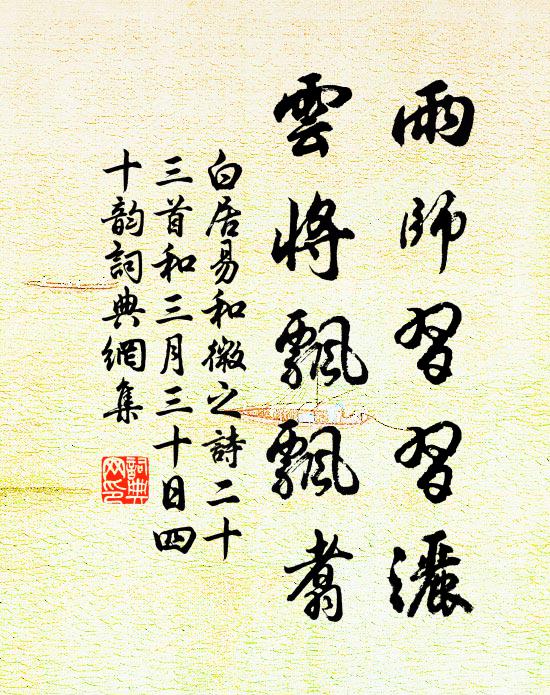 雨師習習灑
雲將飄飄翥
白居易和微之詩二十
三首和三月三十日四
十韵詞典網集
詞典
网印